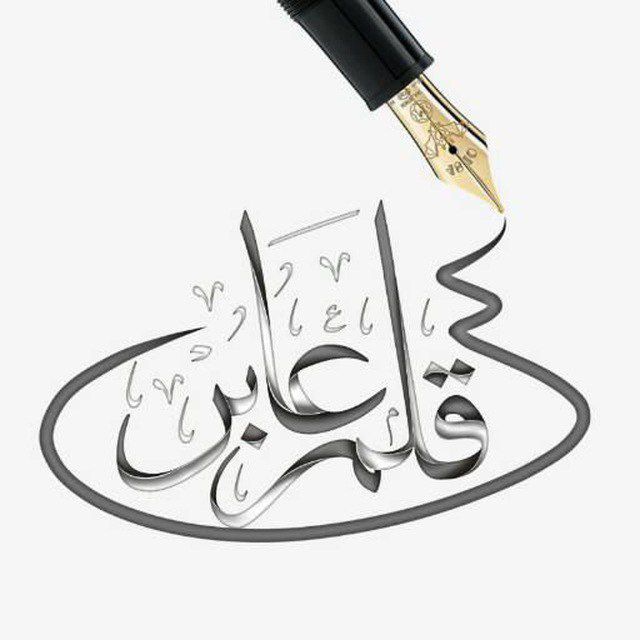 قلم عابر